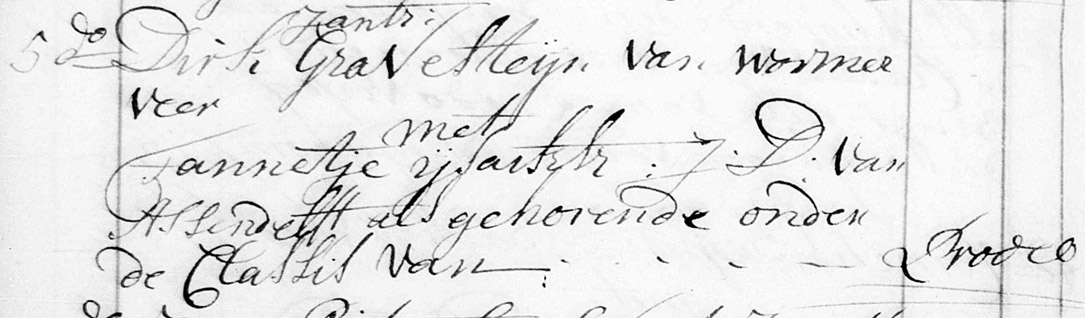 Jantz:
5 do Dirk Gravesteijn van wormer
veer
met
Jannetje ijsartstr: J: D: van
Assendelft als gehorende onder
de Classis van Prodeo